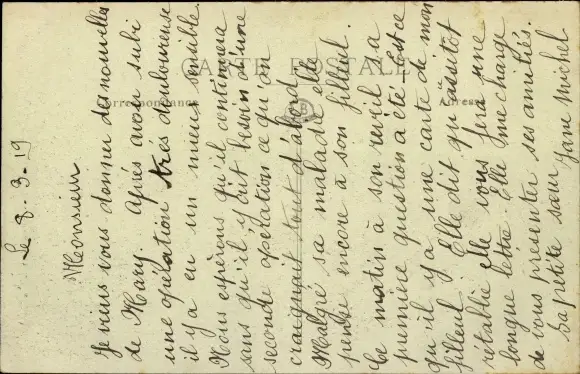 CARTE POSTALE
Correspondance
Adresse
Le 8-3-19
Monsieur
Je viens vous donner des nouvelles
de Mary. Après avoir subi
une opélation très douloureuse
il y a eu un mieux sensible.
Nous espérons qu'il continuera
sans qu'il y ait besoin d'une
seconde opélation ce qu'on
craignait tout d'abord
Malgré sa maladie elle
pense encore à son filleul.
Ce matin à son reveil sa
première question a été Est ce
qu'il y a une carte de mon
filleul. Elle dit qu'aussitôt
retablie elle vous fera une
longue lettre. Elle me charge
de vous présenter ses amitiés.
Sa petite sœur Jane Michel